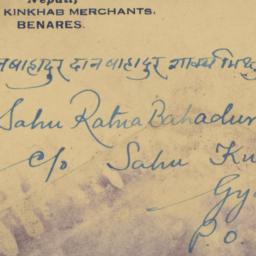 Nepali,
KINKHAB MERCHANTS,
BENARES.
बाहादुर दान बाहादुर शाक्य भिक्षु
Sahu Ratna Bahadur
c/o Sahu Ku
Gya
P.O.